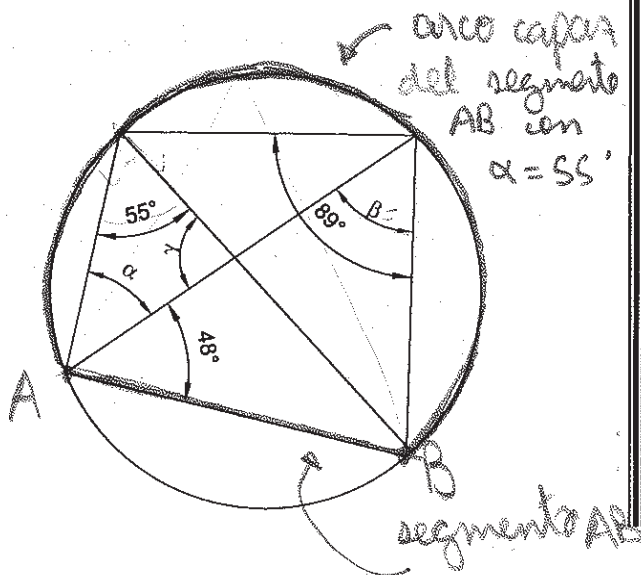 arco capaz
del segmento
AB con
α = 55°
55°
89°
β =
γ
α
48°
A
B
segmento AB